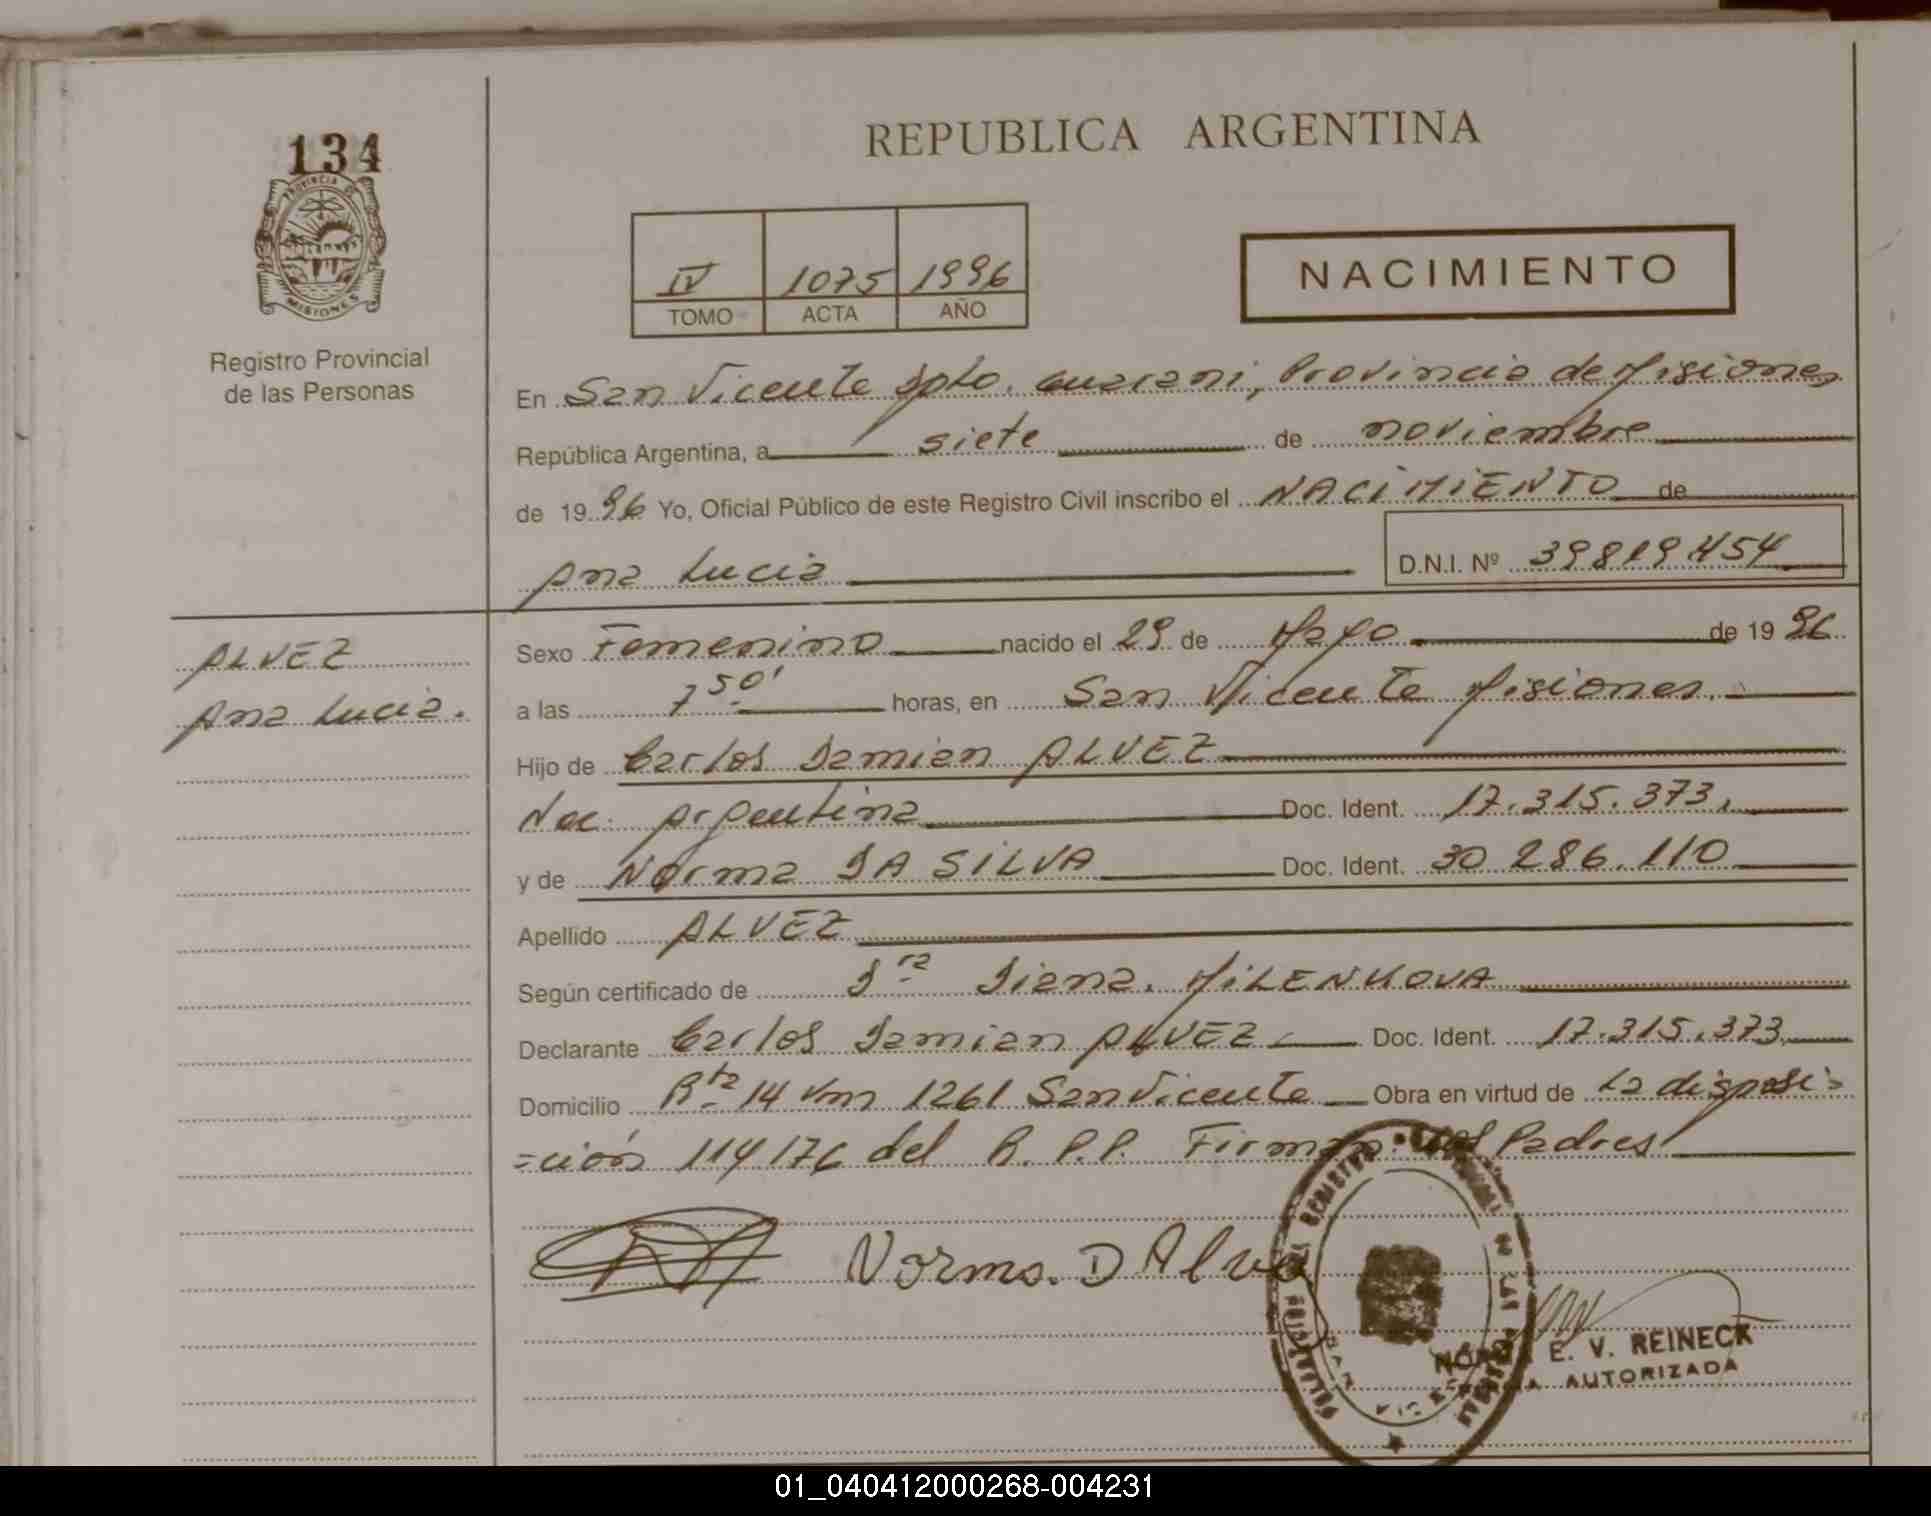 134
PROVINCIA DE
MISIONES
Registro Provincial
de las Personas
REPUBLICA ARGENTINA
IV 1075 1996
TOMO ACTA AÑO
NACIMIENTO
En San Vicente Dpto. Guarani, Provincia de Misiones
República Argentina, a siete de noviembre
de 1996 Yo, Oficial Público de este Registro Civil inscribo el NACIMIENTO de
Ana Lucia D.N.I. Nº 39819454
ALVEZ
Ana Lucia.
Sexo Femenino nacido el 29 de Mayo de 1996
a las 7 50' horas, en San Vicente Misiones.
Hijo de Carlos Damian ALVEZ
Nac. Argentina Doc. Ident. 17.315.373.
y de Norma DA SILVA Doc. Ident. 30 286.110
Apellido ALVEZ
Según certificado de Dra Diana. MILENKOVA
Declarante Carlos Damian ALVEZ Doc. Ident. 17.315.373
Domicilio Rta 14 Km 1261 San Vicente Obra en virtud de La disposi=
=ción 114/76 del R.P.P. Firman: Los Padres
Norma. D Alve
E. V. REINECK
AUTORIZADA
01_040412000268-004231